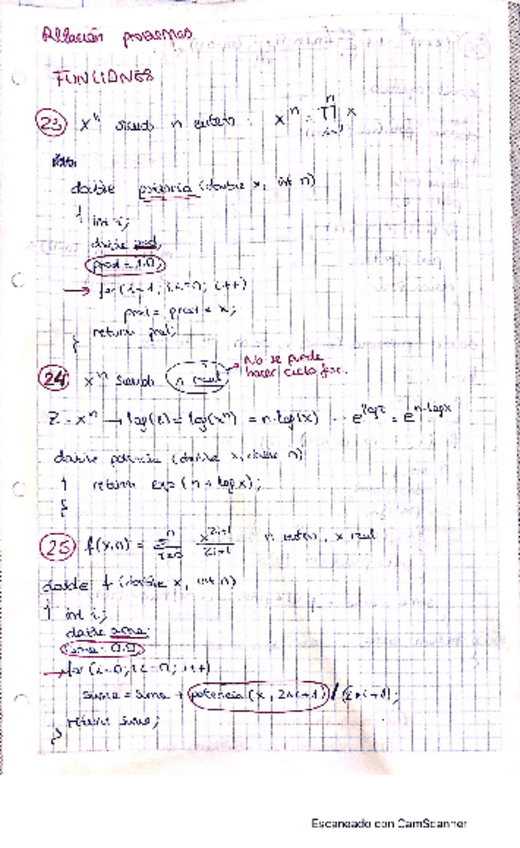 Relación problemas
FUNCIONES
23 x^n siendo n entero : x^n = ∏_{i=1}^{n} x
double potencia (double x, int n)
{ int i;
double prod;
prod = 1.0;
→ for (i=1; i<=n; i++)
prod = prod * x;
return prod;
}
24 x^n siendo n real → No se puede
hacer ciclo for.
z = x^n → log(z) = log(x^n) = n·log(x) e^{log z} = e^{n·log x}
double potencia (double x, double n)
{ return exp(n * log x);
}
25 f(x,n) = ∑_{i=0}^{n} x^{2i+1}/2i+1 n entero, x real
double f (double x, int n)
{ int i;
double suma;
suma = 0.0;
→ for (i=0; i<=n; i++)
suma = suma + potencia(x, 2*i+1) / (2*i+1);
return suma;
}
Escaneado con CamScanner